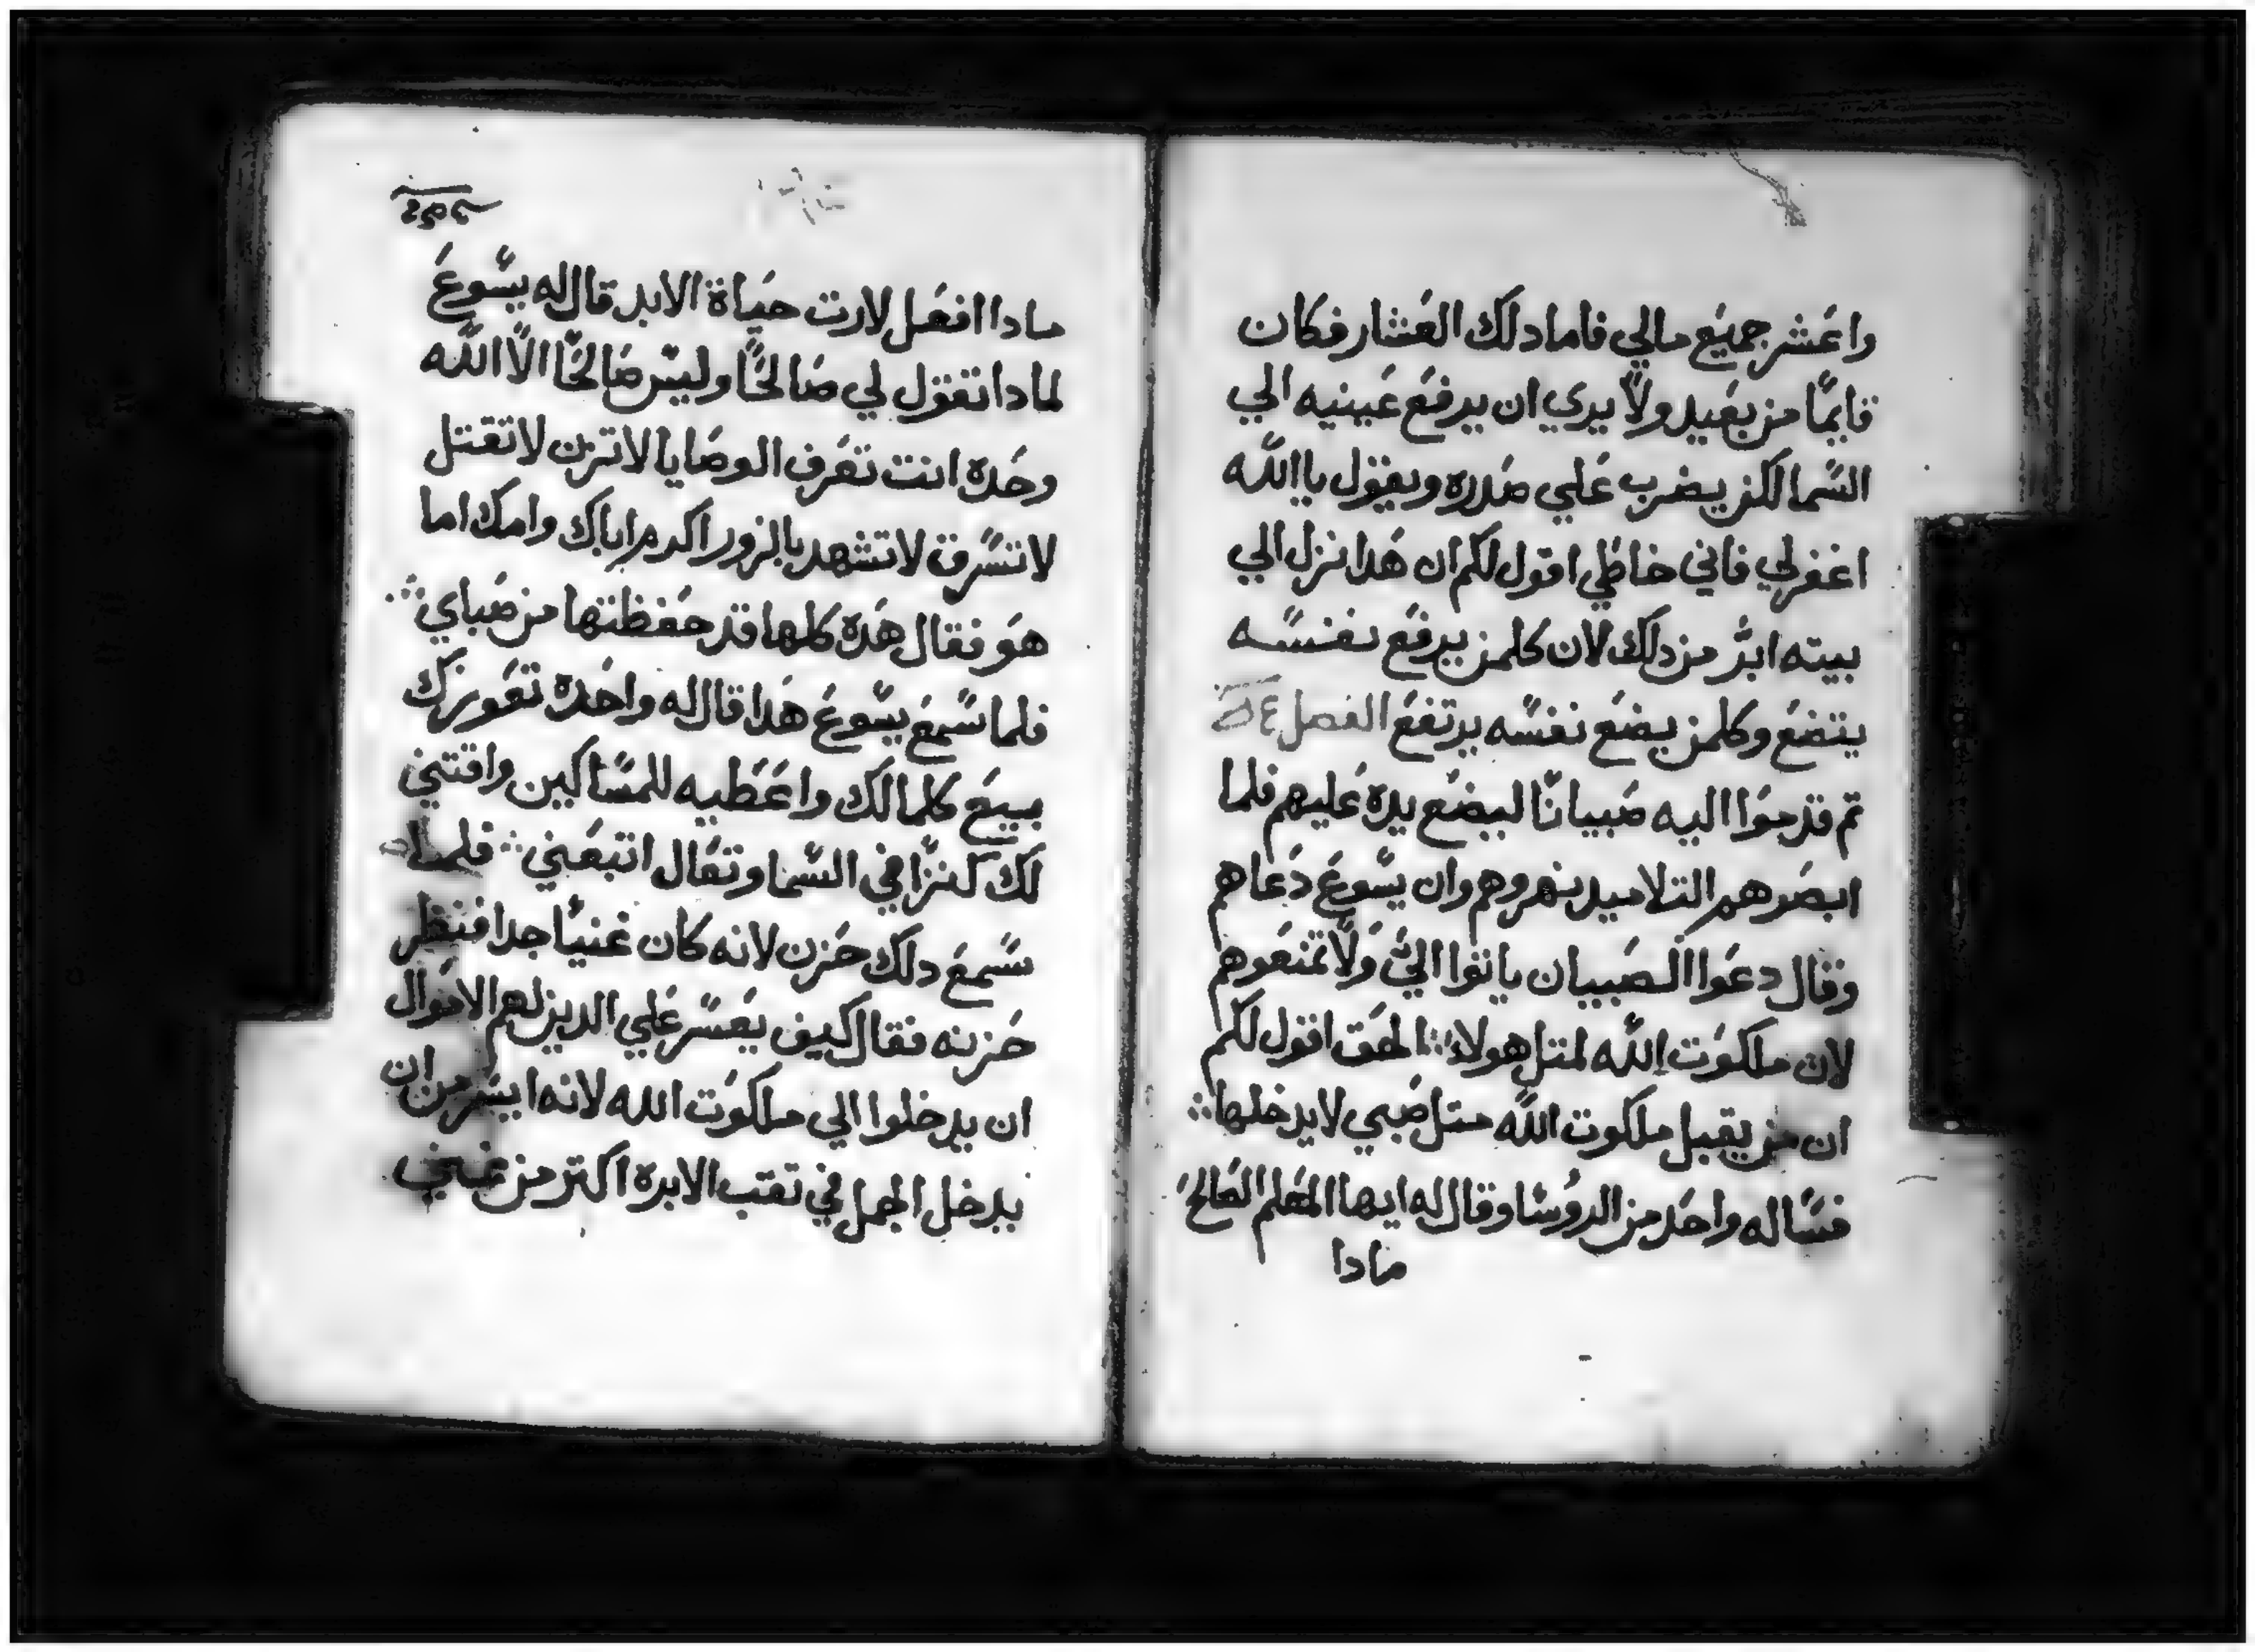 واعشر جميع مالي فاما دلك العشار فكان
قايمًا من بعيد ولا يري ان يرفع عينيه الي
السما لكن يضرب علي صدره ويقول يا الله
اغفرلي فاني خاطي اقول لكم ان هدا نزل الي
بيته ابر من دلك لان كلمن يرفع نفسه
يتضع وكلمن يضع نفسه يرتفع الفصل
تم قدموا اليه صبيانًا ليضع يده عليهم فلما
ابصروهم التلاميد نهروهم وان يسوع دعاهم
وقال دعوا الصبيان ياتوا اليّ ولا تمنعوهم
لان ملكوت الله لمتل هولاء ∴ الحق اقول لكم
ان من يقبل ملكوت الله متل صبي لا يدخلها ∴
فساله واحد من الروسا وقال له ايها المعلم الصالح
مادا
مادا افعل لارت حياة الابد قال له يسوع
لمادا تقول لي صالحًا وليس صالحًا الا الله
وحده انت تعرف الوصايا لا تزن لا تقتل
لا تسرق لا تشهد بالزور اكرم اباك وامك اما
هو فقال هده كلها قد حفظتها من صباي ∴
فلما سمع يسوع هدا قال له واحدة تعوزك
بيع كلما لك واعطيه للمساكين واقتني
لك كنزًا في السما وتعال اتبعني ∴ فلما
سمع دلك حزن لانه كان غنيًا جدا فنظر
حزنه فقال كيف يعسر علي الدين لهم الاموال
ان يدخلوا الي ملكوت الله لانه ايسر من ان
يدخل الجمل في تقب الابره اكتر من غني